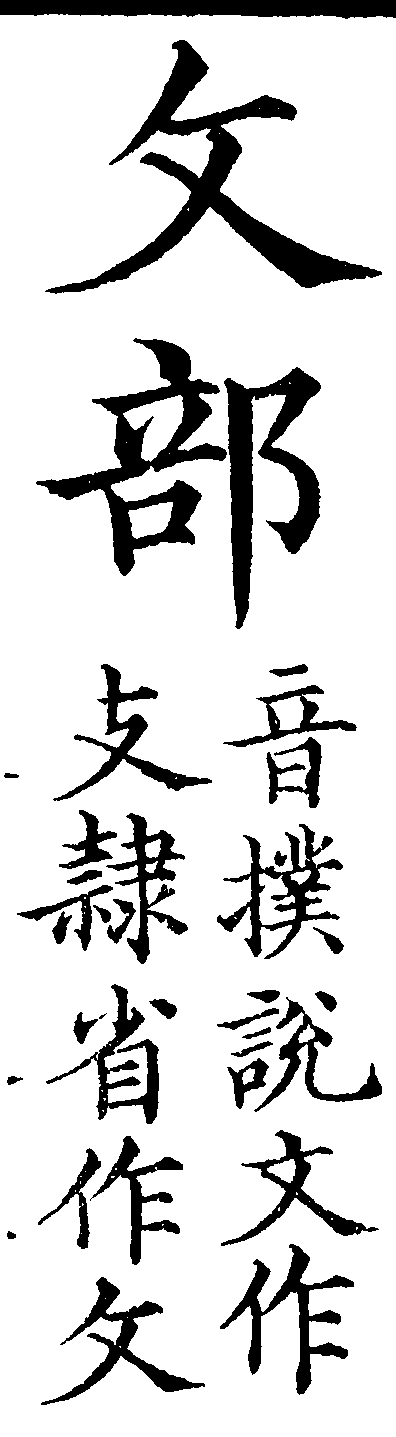 攵部
音撲說文作
攴隸省作攵